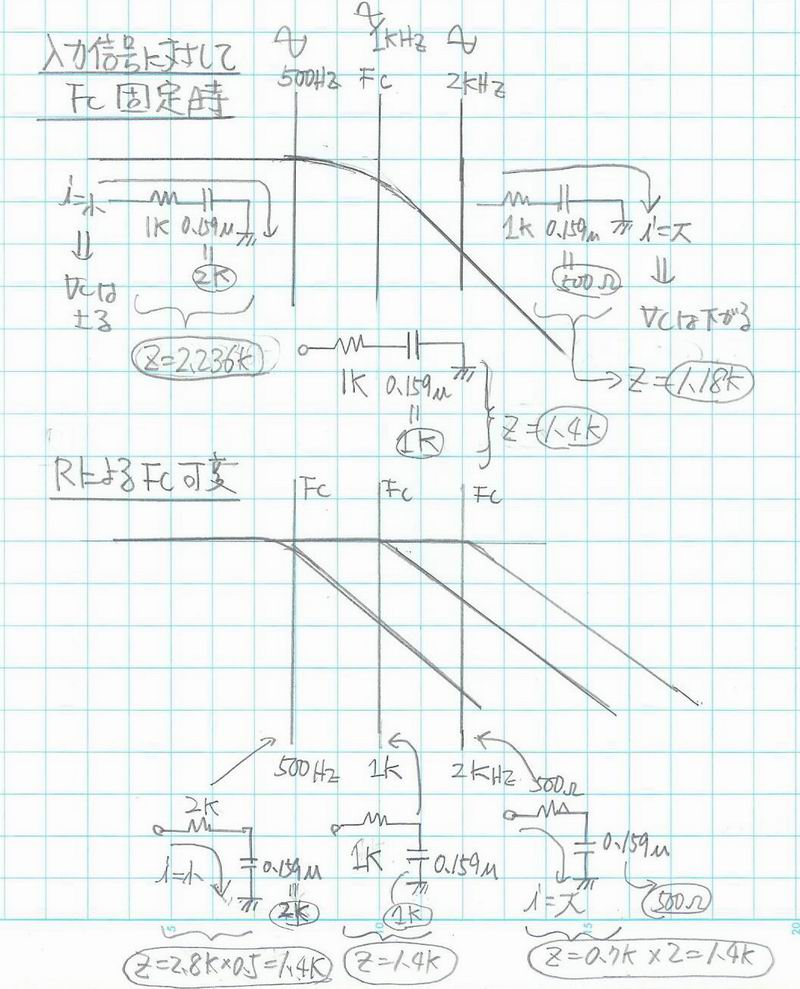 入力信号に対して
Fc 固定時
500Hz
Fc
1KHz
2KHz
i=小
1K 0.159μ
2K
Vcは
上る
Z=2.236K
1K 0.159μ
500Ω
i=大
Vcは下がる
Z=1.18K
1K 0.159μ
1K
Z=1.4K
RによるFc可変
Fc
Fc
Fc
500Hz
1K
2KHz
2K
i=小
0.159μ
2K
1K
0.159μ
1K
500Ω
i=大
0.159μ
500Ω
Z=2.8K×0.5=1.4K
Z=1.4K
Z=0.7K×2=1.4K
5
10
15
20